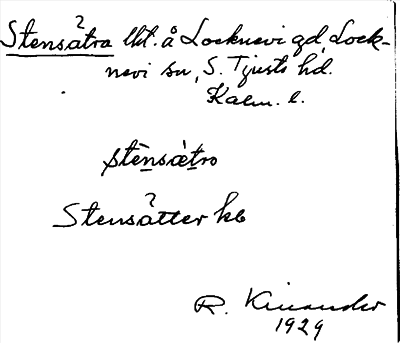 Stensåtra lht. å Locknevi gd, Lock-
nevi sn, S. Tjusts hd.
Kalm. l.
stènsà̤tro
Stensåtter kb
R. Kinander
1929